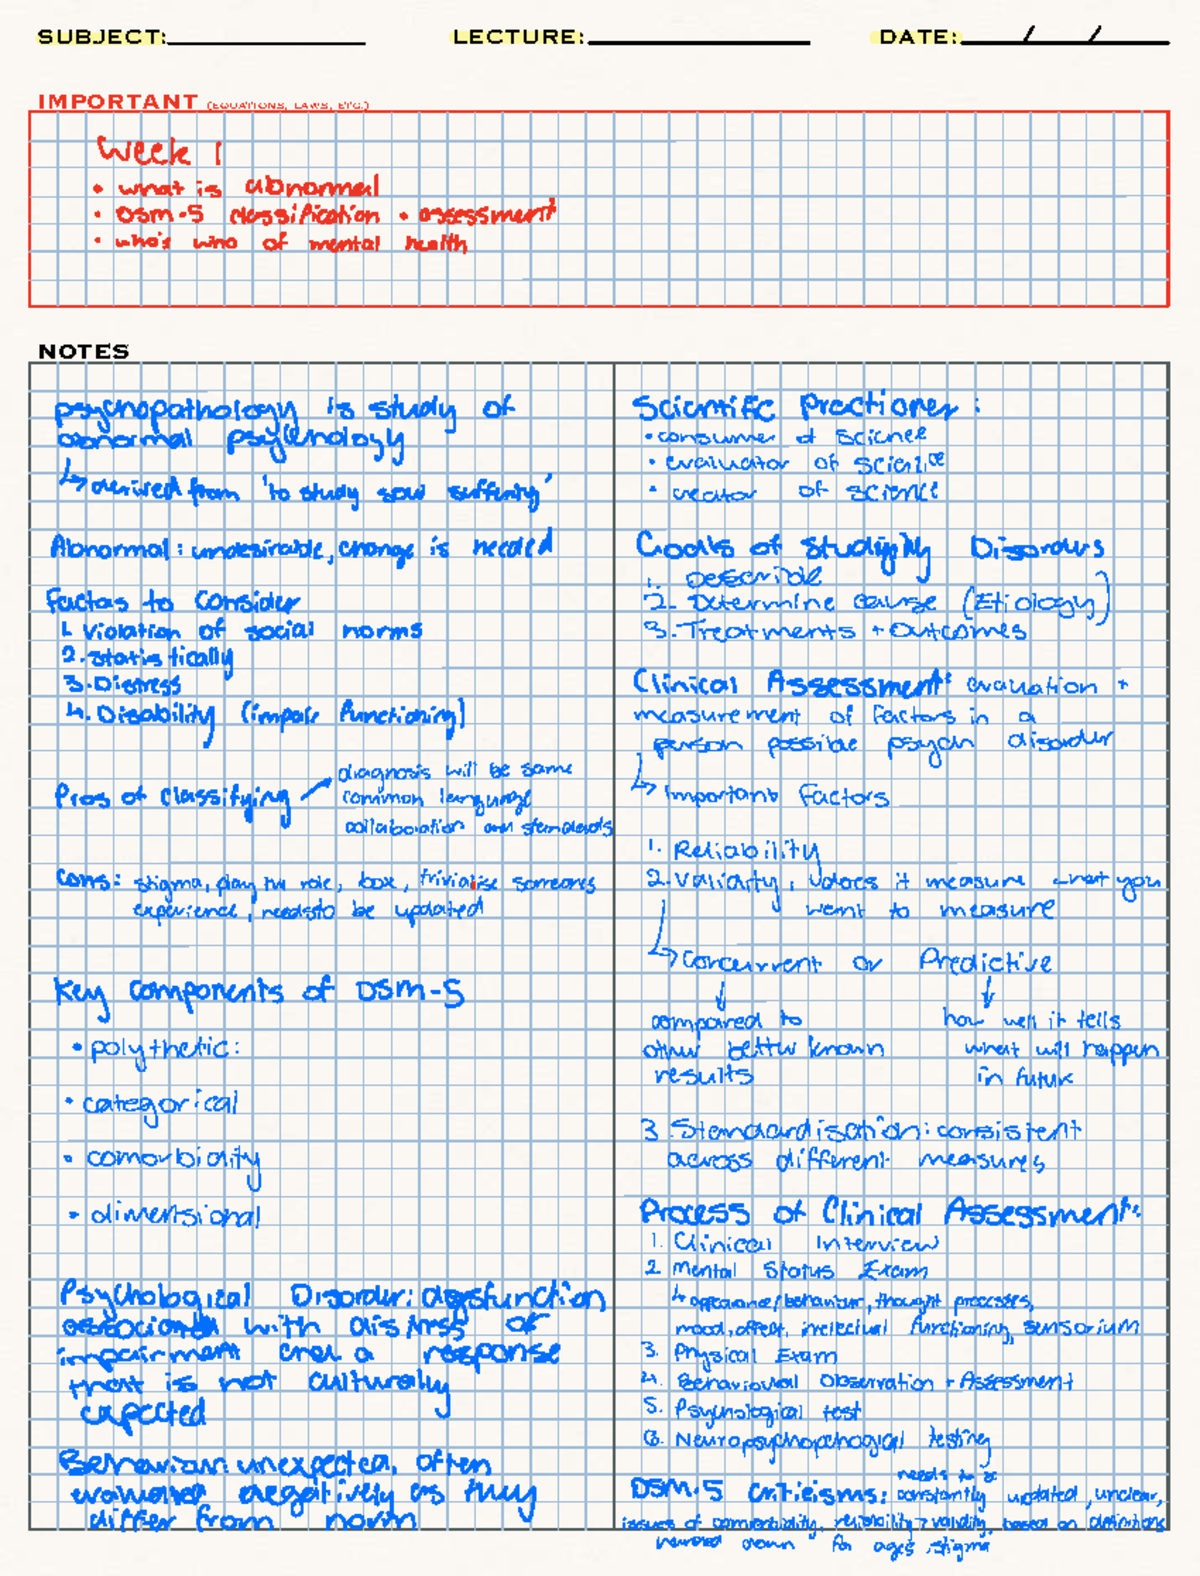 SUBJECT:
LECTURE:
DATE: / /
IMPORTANT (EQUATIONS, LAWS, ETC.)
Week 1
• what is abnormal
• DSM-5 classification • assessment
• who's who of mental health
NOTES
psychopathology is study of
abnormal psychology
↳ derived from 'to study soul suffering'
Abnormal: undesirable, change is needed
Factors to consider
1. Violation of social norms
2. Statistically
3. Distress
4. Disability (impair functioning)
Pros of classifying → diagnosis will be same
common language
collaboration and standards
Cons: stigma, play the role, box, trivialise someones
experience, needs to be updated
Key Components of DSM-5
• polythetic:
• categorical
• comorbidity
• dimensional
Psychological Disorder: dysfunction
associated with distress or
impairment and a response
that is not culturally
expected
Behaviour: unexpected, often
evaluated negatively as they
differ from norm
Scientific Practioner:
• consumer of science
• evaluator of science
• creator of science
Goals of Studying Disorders
1. Describe
2. Determine cause (Etiology)
3. Treatments + Outcomes
Clinical Assessment: evaluation +
measurement of factors in a
person possible psych disorder
↳ Important Factors
1. Reliability
2. Validity, does it measure what you
want to measure
↳ Concurrent or Predictive
compared to
other better known
results
how well it tells
what will happen
in future
3. Standardisation: consistent
across different measures
Process of Clinical Assessment:
1. Clinical Interview
2. Mental Status Exam
↳ appearance/behaviour, thought processes,
mood, affect, intelectual functioning, sensorium
3. Physical Exam
4. Behavioural Observation + Assessment
5. Psychological test
6. testing
DSM-5 Criticisms: needs to be
constantly updated, unclear,
issues of comorbidity, reliability > validity, based on definitions
down for ages, stigma